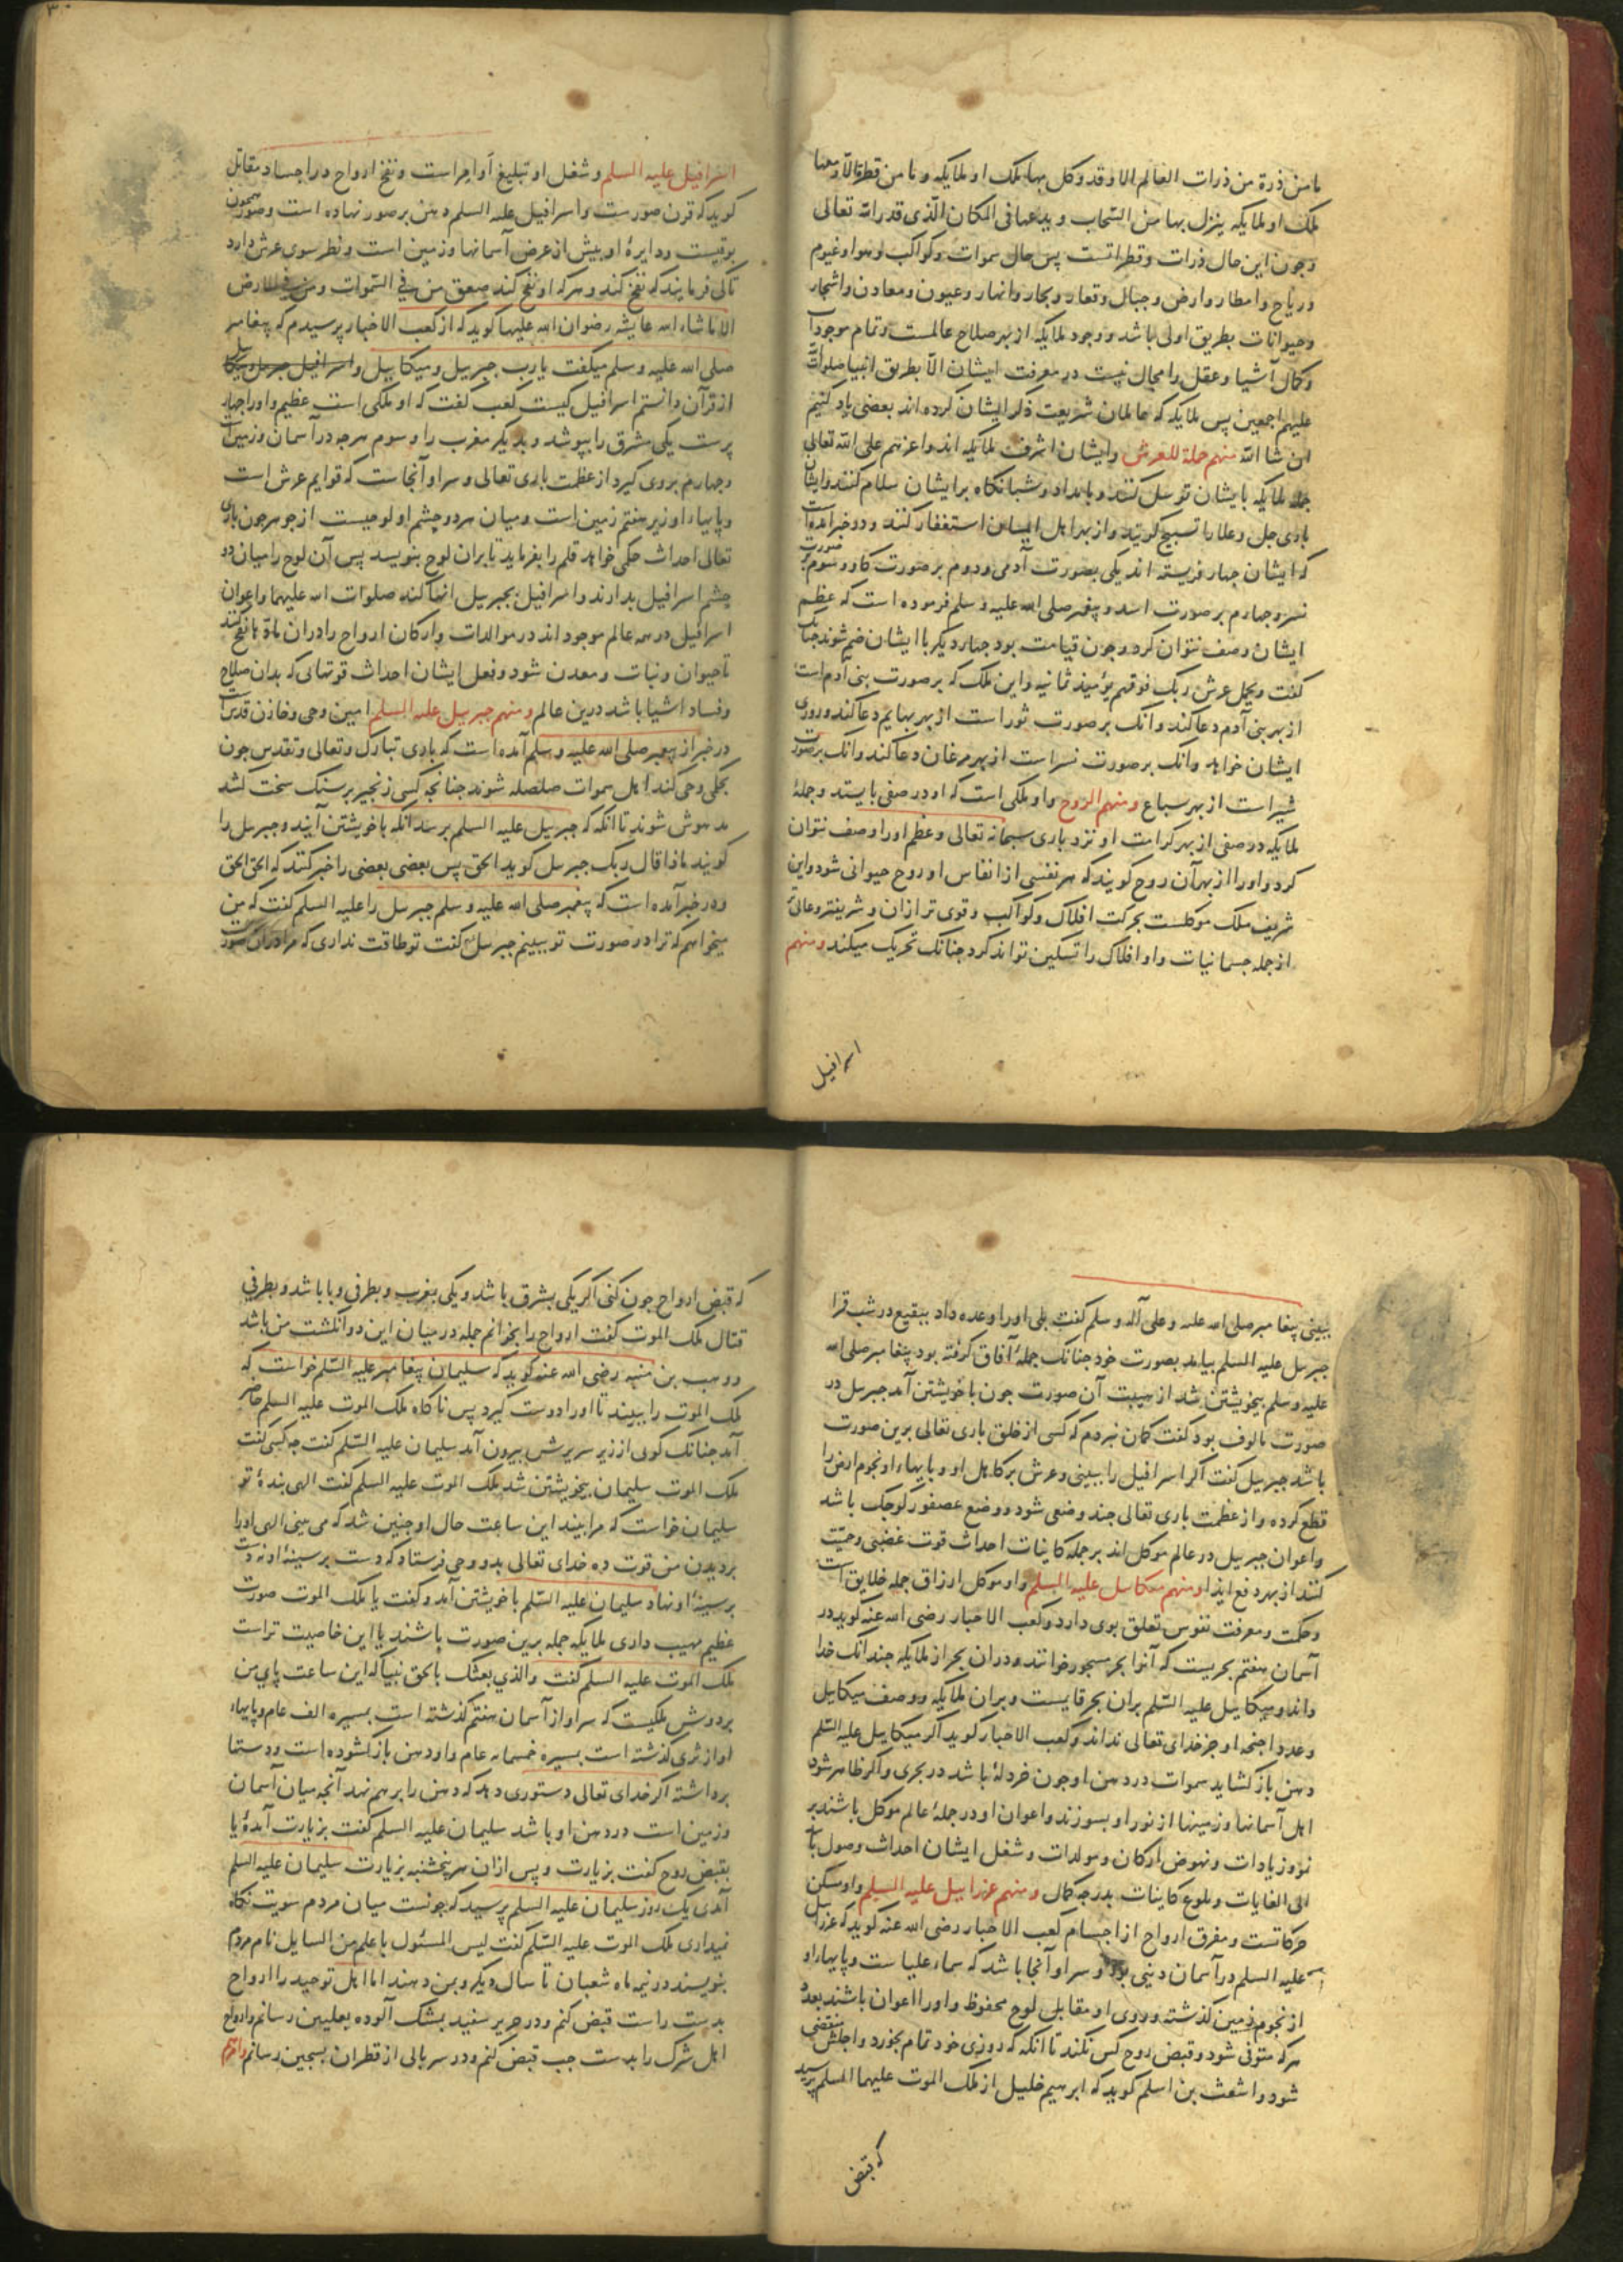 ما من ذرة من ذرات العالم الا وقد وكل بها ملك او ملایكه و ما من قطرة الا ومعها
ملك او ملایكه ینزل بها من السحاب و یدعها فی المكان الذی قدر الله تعالی
وچون این حال ذرات وقطراتست پس حال سموات وكواكب وهوا وغیوم
وریاح وامطار وارض وجبال وقفار وبحار وانهار وعیون ومعادن واشجار
وحیوانات بطریق اولی باشد ووجود ملایكه از بهر صلاح عالمست وتمام موجودات
وكمال اشیا وعقل را مجال نیست در معرفت ایشان الا بطریق انبیا صلوات الله
علیهم اجمعین پس ملایكه كه عالمان شریعت ذكر ایشان كرده اند بعضی یاد كنیم
ان شا الله منهم حملة العرش وایشان اشرف ملایكه اند واعزهم علی الله تعالی
جمله ملایكه بایشان توسل كنند وبامداد وشبانكاه بر ایشان سلام كنند وایشان
باری جل وعلا را تسبیح كویند واز بهر اهل ایمان استغفار كنند ودر خبر آمده است
كه ایشان چهار فریسته اند یكی بصورت آدمی ودوم بر صورت كاو وسوم بر صورت
نسر وچهارم بر صورت اسد وپیغمبر صلی الله علیه وسلم فرموده است كه عظم
ایشان وصف نتوان كرد وچون قیامت بود چهار دیكر با ایشان ضم شوند چنانك
كفت ویحمل عرش ربك فوقهم یومئذ ثمانیه واین ملك كه بر صورت بنی آدم است
از بهر بنی آدم دعا كند وآنك بر صورت ثور است از بهر بهایم دعا كند وروزی
ایشان خواهد وآنك بر صورت نسر است از بهر مرغان دعا كند وآنك بر صورت
شیر است از بهر سباع ومنهم الروح واو ملكی است كه او در صفی بایستد وجملهٔ
ملایكه در صفی از بهر كرامت او نزد باری سبحانه تعالی وعظم اورا وصف نتوان
كرد واورا از بهر آن روح كویند كه هر نفسی از انفاس او روح حیوانی شود واین
شریف ملك موكلست بحركت افلاك وكواكب وقوی تر ازان وشریفتر وعالی
از جمله جسمانیات واو افلاك را تسكین تواند كرد چنانك تحریك میكند ومنهم
اسرافیل
اسرافیل علیه السلم وشغل او تبلیغ اوامر است ونفخ ارواح در اجساد مقاتل
كوید كه قرن صورست واسرافیل علیه السلم دهن بر صور نهاده است وصور همچون
بوقیست ودایرهٔ او بیش از عرض آسمانها وزمین است ونظر سوی عرش دارد
تا كی فرمایند كه نفخ كند وهركه او نفخ كند صعق من فی السموات ومن فی الارض
الا ما شاء الله عایشه رضوان الله علیها كوید كه از كعب الاخبار پرسیدم كه پیغامبر
صلی الله علیه وسلم میكفت یا رب جبریل ومیكاییل واسرافیل جبریل ومیكاییل
از قرآن دانستم اسرافیل كیست كعب كفت كه او ملكی است عظیم واورا چهار
پرست یكی مشرق را بپوشد وبدیكر مغرب را وسوم هرچه در آسمان وزمین است
وچهارم بروی كیرد از عظمت باری تعالی وسر او آنجاست كه قوایم عرش است
وپایهاء او زیر هفتم زمین است ومیان هر دو چشم او لوحیست از جوهر چون باری
تعالی احداث حكمی خواهد قلم را بفرماید تا بران لوح بنویسد پس آن لوح را میان دو
چشم اسرافیل بدارند واسرافیل بجبریل انها كند صلوات الله علیهما واعوان
اسرافیل در همه عالم موجود اند در موالدات واركان ارواح را دران مادّها نفخ كنند
تا حیوان ونبات ومعدن شود وفعل ایشان احداث قوتهائی كه بدان صلاح
وفساد اشیا باشد درین عالم ومنهم جبرییل علیه السلم امین وحی وخازن قدس است
در خبر از پیغمبر صلی الله علیه وسلم آمده است كه باری تبارك وتعالی وتقدس چون
بحكمی وحی كند اهل سموات صلصله شنوند چنانچه كسی زنجیر بر سنك سخت كشد
مدهوش شوند تا آنكه كه جبریل علیه السلم برسد آنكه باخویشتن آیند وجبریل را
كویند ماذا قال ربك جبریل كوید الحق پس بعضی بعضی را خبر كنند كه الحق الحق
ودر خبر آمده است كه پیغمبر صلی الله علیه وسلم جبریل را علیه السلم كفت كه من
میخواهم كه ترا در صورت تو ببینم جبریل كفت تو طاقت نداری كه مرا دران صورت
ببینی پیغامبر صلی الله علیه وعلی آله وسلم كفت بلی اورا وعده داد ببقیع در شب قرا
جبریل علیه السلم بیامد بصورت خود چنانك جملهٔ آفاق كرفته بود پیغامبر صلی الله
علیه وسلم بیخویشتن شد از هیبت آن صورت چون باخویشتن آمد جبریل در
صورت مالوف بود كفت كمان نبردم كه كسی از خلق باری تعالی برین صورت
باشد جبریل كفت اكر اسرافیل را ببینی وعرش بر كاهل او وپایهاء او نجوم ارض را
قطع كرده واز عظمت باری تعالی چند وضعی شود ووضع عصفور كوچك باشد
واعوان جبریل در عالم موكل اند بر جمله كاینات احداث قوت غضبی وحمیّت
كنند از بهر دفع ایذا ومنهم میكاییل علیه السلم واو موكل ارزاق جمله خلایق است
وحكمت ومعرفت نفوس تعلق بوی دارد وكعب الاحبار رضی الله عنه كوید در
آسمان هفتم بحریست كه آنرا بحر مسجور خوانند ودران بحر از ملایكه چندانك خدا
داند ومیكاییل علیه السلم بران بحر قایمست وبران ملایكه ووصف میكاییل
وعدد اجنحه او جز خدای تعالی نداند وكعب الاحبار كوید اكر میكاییل علیه السلم
دهن باز كشاید سموات در دهن او چون خردلهٔ باشد در بحری واكر ظاهر شود
اهل آسمانها وزمینها از نور او بسوزند واعوان او در جملهٔ عالم موكل باشند بر
نمو وزیادات ونهوض اركان ومولدات وشغل ایشان احداث وصول
الی الغایات وبلوغ كاینات بدرجه كمال ومنهم عزراییل علیه السلم واو مسكن
حركاتست ومفرق ارواح از اجسام كعب الاحبار رضی الله عنه كوید كه عزراییل
علیه السلم در آسمان دنیی بود وسر او آنجا باشد كه سماء علیاست وپایهاء او
از نجوم زمین كذشته وروی او مقابل لوح محفوظ واورا اعوان باشند بعدد
هركه متوفی شود وقبض روح كس نكند تا آنكه كه روزی خود تمام بخورد واجلش منقضی
شود واشعث بن اسلم كوید كه ابرهیم خلیل از ملك الموت علیهما السلم پرسید
كه قبض
كه قبض ارواح چون كنی اكر یكی بمشرق باشد ویكی بمغرب وبطرفی وبا باشد وبطرفی
قتال ملك الموت كفت ارواح را بخوانم جمله در میان این دو انكشت من باشد
ووهب بن منبه رضی الله عنه كوید كه سلیمان پیغامبر علیه السلم خواست كه
ملك الموت را ببیند تا اورا دوست كیرد پس ناكاه ملك الموت علیه السلم حاضر
آمد چنانك كویی از زیر سریرش بیرون آمد سلیمان علیه السلم كفت چه كسی كفت
ملك الموت سلیمان بیخویشتن شد ملك الموت علیه السلم كفت الهی بندهٔ تو
سلیمان خواست كه مرا ببیند این ساعت حال او چنین شد كه می بینی الهی اورا
بر دیدن من قوت ده خدای تعالی بدو وحی فرستاد كه دست بر سینهٔ او نه دست
بر سینهٔ او نهاد سلیمان علیه السلم باخویشتن آمد وكفت یا ملك الموت صورت
عظیم مهیب داری ملایكه جمله برین صورت باشند یا این خاصیت تراست
ملك الموت علیه السلم كفت والذی بعثك بالحق نبیا كه این ساعت پای من
بر دوش ملكیست كه سر او از آسمان هفتم كذشته است بمسیره الف عام وپایهاء
او از ثری كذشته است بمسیره خمسمایه عام واو دهن باز كشوده است ودستها
برداشته اكر خدای تعالی دستوری دهد كه دهن را بر هم نهد آنچه میان آسمان
وزمین است در دهن او باشد سلیمان علیه السلم كفت بزیارت آمدهٔ یا
بقبض روح كفت بزیارت وپس ازان هر پنجشنبه بزیارت سلیمان علیه السلم
آمدی یك روز سلیمان علیه السلم پرسید كه چونست میان مردم سویت نكاه
نمیداری ملك الموت علیه السلم كفت لیس المسئول باعلم من السایل نام مردم
بنویسند در نیمه ماه شعبان تا سال دیكر وبمن دهند اما اهل توحید را ارواح
بدست راست قبض كنم ودر حریر سفید بمشك آلوده بعلیین رسانم وارواح
اهل شرك را بدست چپ قبض كنم ودر سربالی از قطران بسجین رسانم